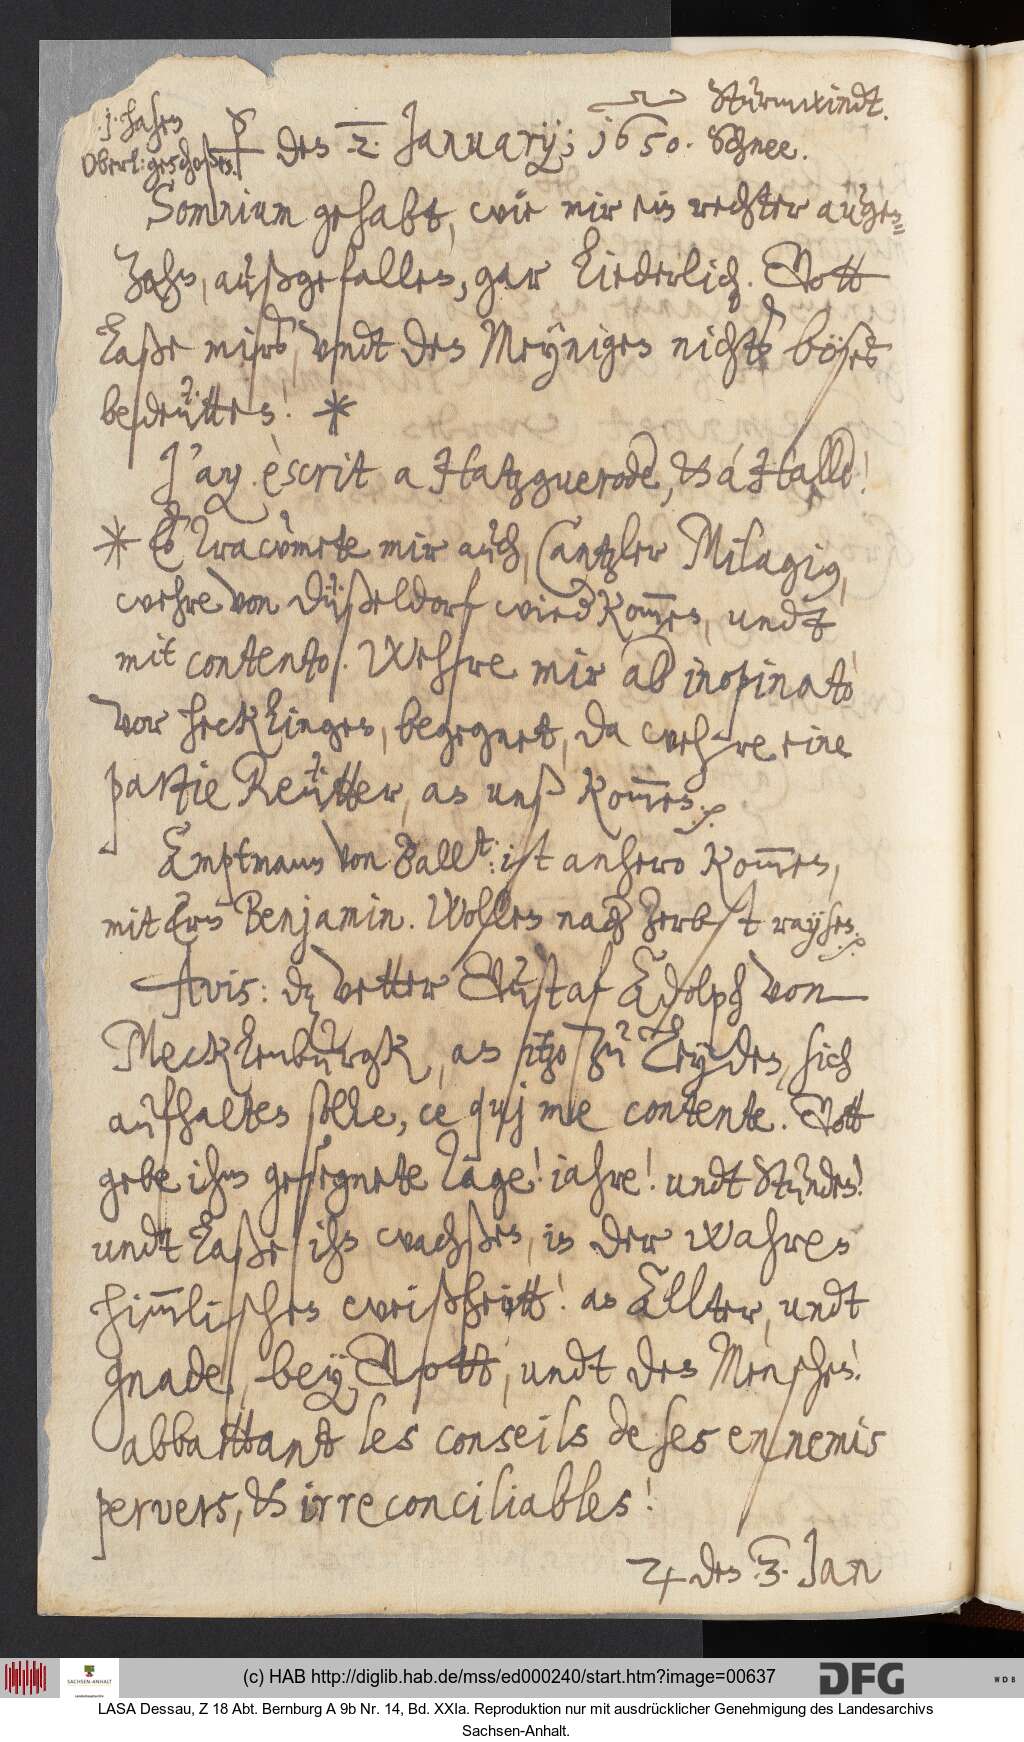 .j. hasen
Oberl: geschoßen.
Sturmwindt.
☿ den 2. January; 1650. Schnee.
Somnium gehabt, wie mir ein rechter augen=
Zahn, außgefallen, gar liederlich. Gott
laße mirs, undt den Meynigen nichts böses
bedeütten! *
J'ay escrit a Hatzguerode, & á Halle!
* Es tracumete mir auch, Cantzler Milagig,
wehre von Düßeldorf wiedkom̅en, undt
mit contento. Wehre mir ab inopinato
vor Hecklingen, begegnet, da wehre eine
partie Reütter, an unß kom̅en.
Amptmann von Ballt: ist anhero kom̅en,
mit Ern Benjamin. Wollen nach Zerbst raysen.
Avis: dz vetter Gustaf Adolph von
Mecklenburgk, an itzo zu Leyden, sich
aufhalten solle, ce quj me contente. Gott
gebe ihm gesegnete Tage! jahre! undt Stunden!
undt laße ihn wachßen, in der wahren
him̅lischen weißheitt! an Allter, undt
gnade, bey Gott, undt den Menschen!
abbattant les conseils de ses ennemis
pervers, & irreconciliables!
♃ den .3. Jan
(c) HAB http://diglib.hab.de/mss/ed000240/start.htm?image=00637
SACHSEN-ANHALT
DFG
WDB
LASA Dessau, Z 18 Abt. Bernburg A 9b Nr. 14, Bd. XXIa. Reproduktion nur mit ausdrücklicher Genehmigung des Landesarchivs
Sachsen-Anhalt.